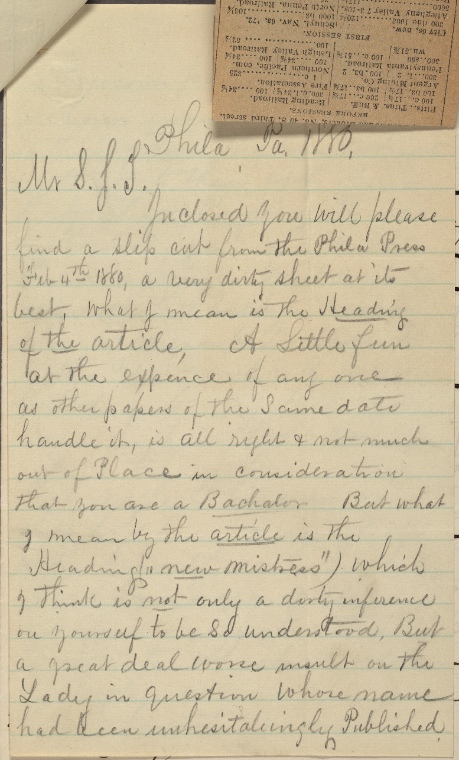 Phila Pa. 1880,
Mr S. J. T.
Inclosed you will please
find a slip cut from the Phila Press
Feb 4th 1880, a very dirty sheet at its
best, what I mean is the Heading
of the article, A Little fun
at the expence of any one
as other papers of the same date
handle it, is all right & not much
out of Place in consideration
that you are a Bachalor But what
I mean by the article is the
Heading ("new mistress") which
I think is not only a dirty inference
on yourself to be so understood, But
a great deal worse insult on the
Lady in question whose name
had been unhesitatingly Published
Third Street.
BEFORE SESSIONS.
Pitts., Titus. & Buff.
Reading Railroad.
Fire Association.
Argent Mining Co.
Northern Pacific, com.
Pennsylvania Railroad.
Lehigh Valley Railroad.
FIRST SESSION.